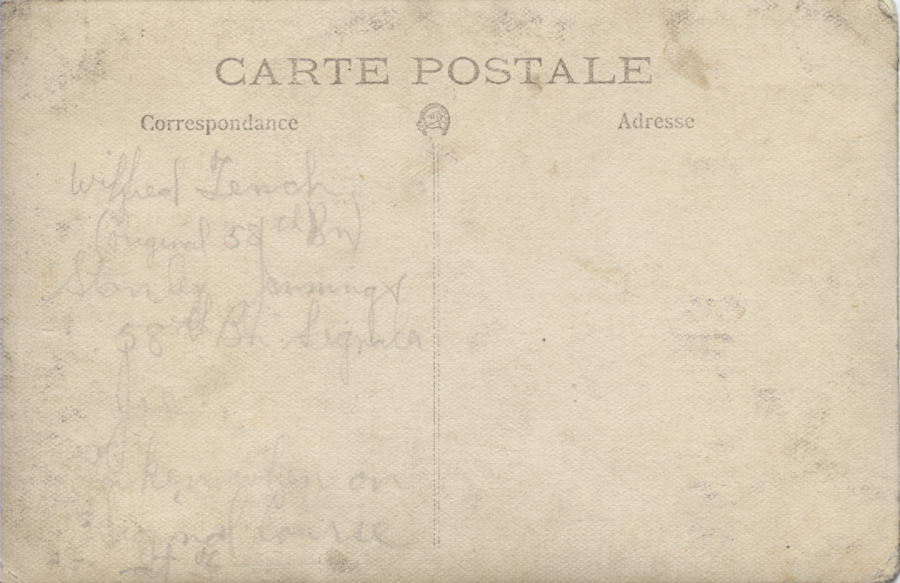 CARTE POSTALE
Correspondance
Adresse
Wilfred Tench
(Original 58th Bn)
Stanley Jennings
58th Bn. Signals
taken when on
Signal Course